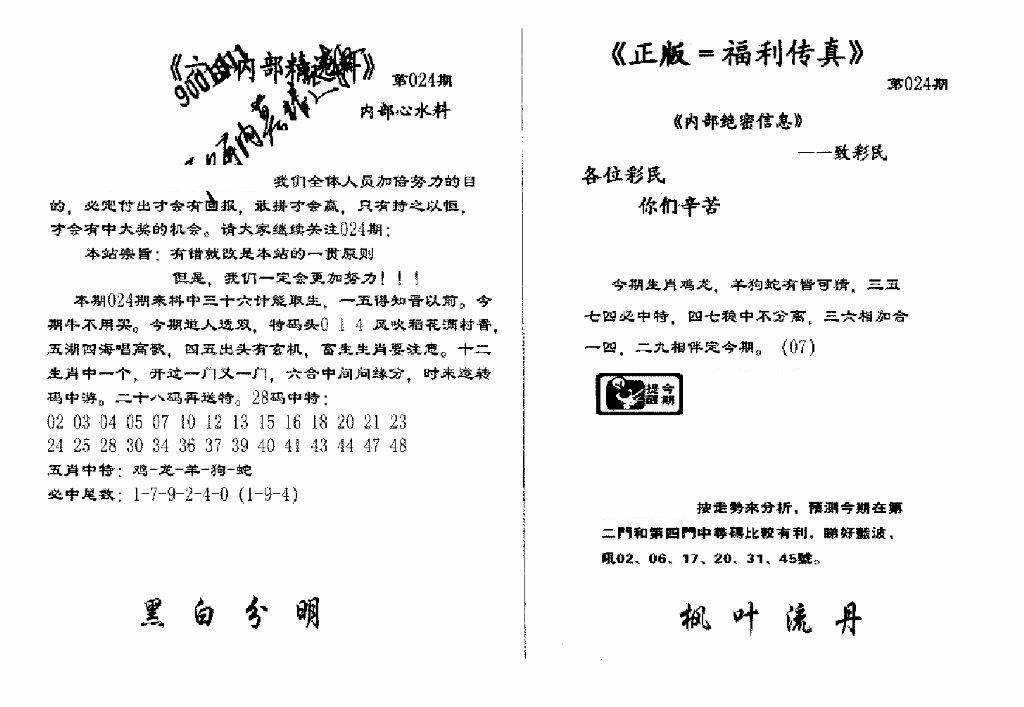 内部精选料》
第024期
内部心水料
我们全体人员加倍努力的目
的，必定付出才会有回报，敢拼才会赢，只有持之以恒，
才会有中大奖的机会。请大家继续关注024期：
本站崇旨：有错就改是本站的一贯原则
但是，我们一定会更加努力！！！
本期024期来料中三十六计能取生，一五得知晋以前。今
期牛不用买。今期道人透双，特码头0 1 4 风吹稻花满村香，
五湖四海唱高歌，四五出头有玄机，富生生肖要注意。十二
生肖中一个，开过一门又一门，六合中间问缘分，时来运转
码中游。二十八码再送特。28码中特：
02 03 04 05 07 10 12 13 15 16 18 20 21 23
24 25 28 30 34 36 37 39 40 41 43 44 47 48
五肖中特：鸡-龙-羊-狗-蛇
必中尾数：1-7-9-2-4-0 (1-9-4)
黑白分明
《正版＝福利传真》
第024期
《内部绝密信息》
——致彩民
各位彩民
你们辛苦
今期生肖鸡龙，羊狗蛇有皆可猜，三五
七四必中特，四七稳中不分离，三六相加合
一四，二九相伴定今期。(07)
今期
提醒
按走勢來分析，預測今期在第
二門和第四門中尋碼比較有利，睇好藍波，
吼02、06、17、20、31、45號。
枫叶流丹